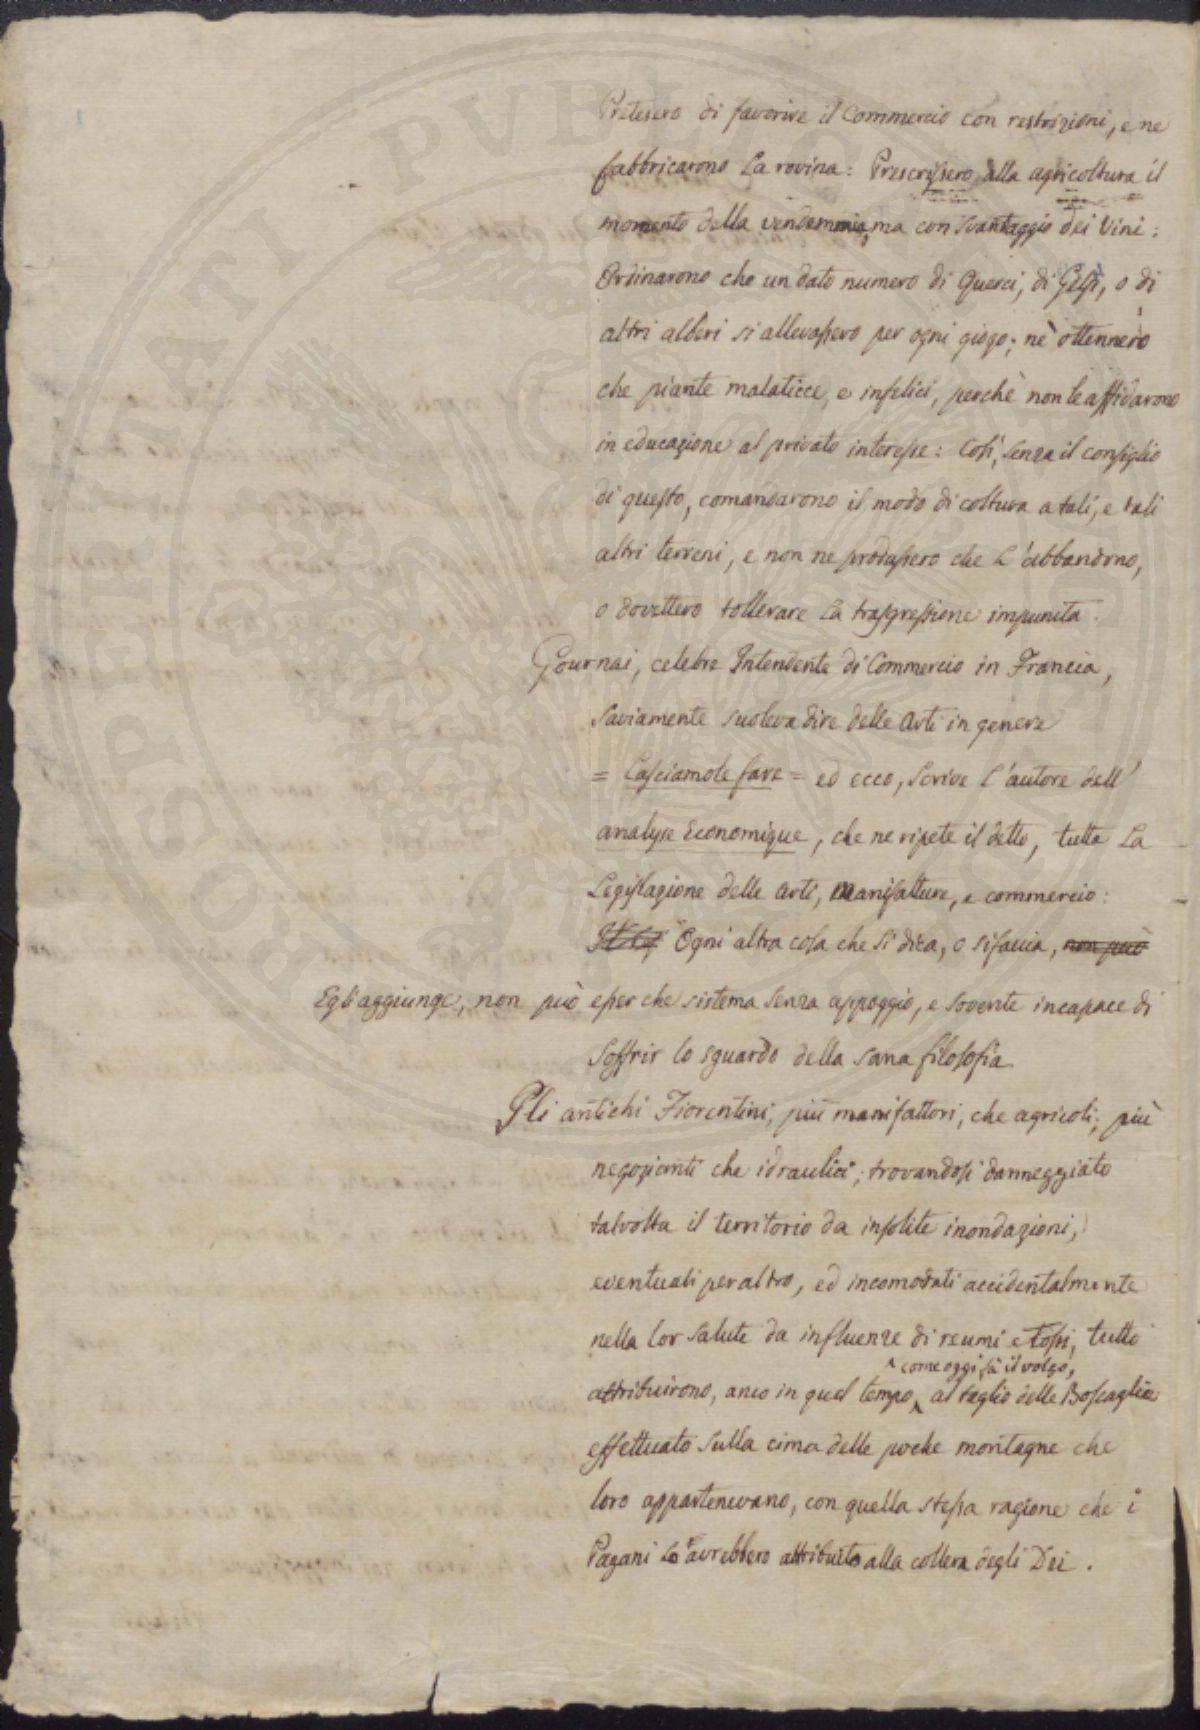 Pretesero di favorire il Commercio con restrizioni, e ne
fabbricarono la rovina: Prescrissero alla agricoltura il
momento della vendemmia, ma con svantaggio dei Vini:
Ordinarono che un dato numero di Querci, di Gelsi, o di
altri alberi si allevassero per ogni giogo; nè ottennero
che piante malaticce, e infelici, perchè non le affidarono
in educazione al privato interesse: Così, senza il consiglio
di questo, comandarono il modo di coltura a tali, e tali
altri terreni, e non ne produssero che l'abbandono,
o dovettero tollerare la trasgressione impunita.
Gournai, celebre Intendente di Commercio in Francia,
saviamente soleva dire delle Arti in genere
= Lasciamole fare = ed ecco, scrive l'autore dell'
analyse Economique, che ne ripete il detto, tutta la
Legislazione delle arti, manifatture, e commercio:
Ogni altra cosa che si dica, o si faccia, non può
Egli aggiunge, non può esser che sistema senza appoggio, e sovente incapace di
soffrir lo sguardo della sana filosofia
Gli antichi Fiorentini, più manifattori, che agricoli; più
negozianti che idraulici; trovandosi danneggiato
talvolta il territorio da insolite inondazioni,
eventuali per altro, ed incomodati accidentalmente
nella lor salute da influenze di reumi e tossi, tutto
come oggi fà il volgo,
attribuirono, anco in quel tempo, al taglio delle Boscaglie
effettuato sulla cima delle poche montagne che
loro appartenevano, con quella stessa ragione che i
Pagani lo avrebbero attribuito alla collera degli Dei.